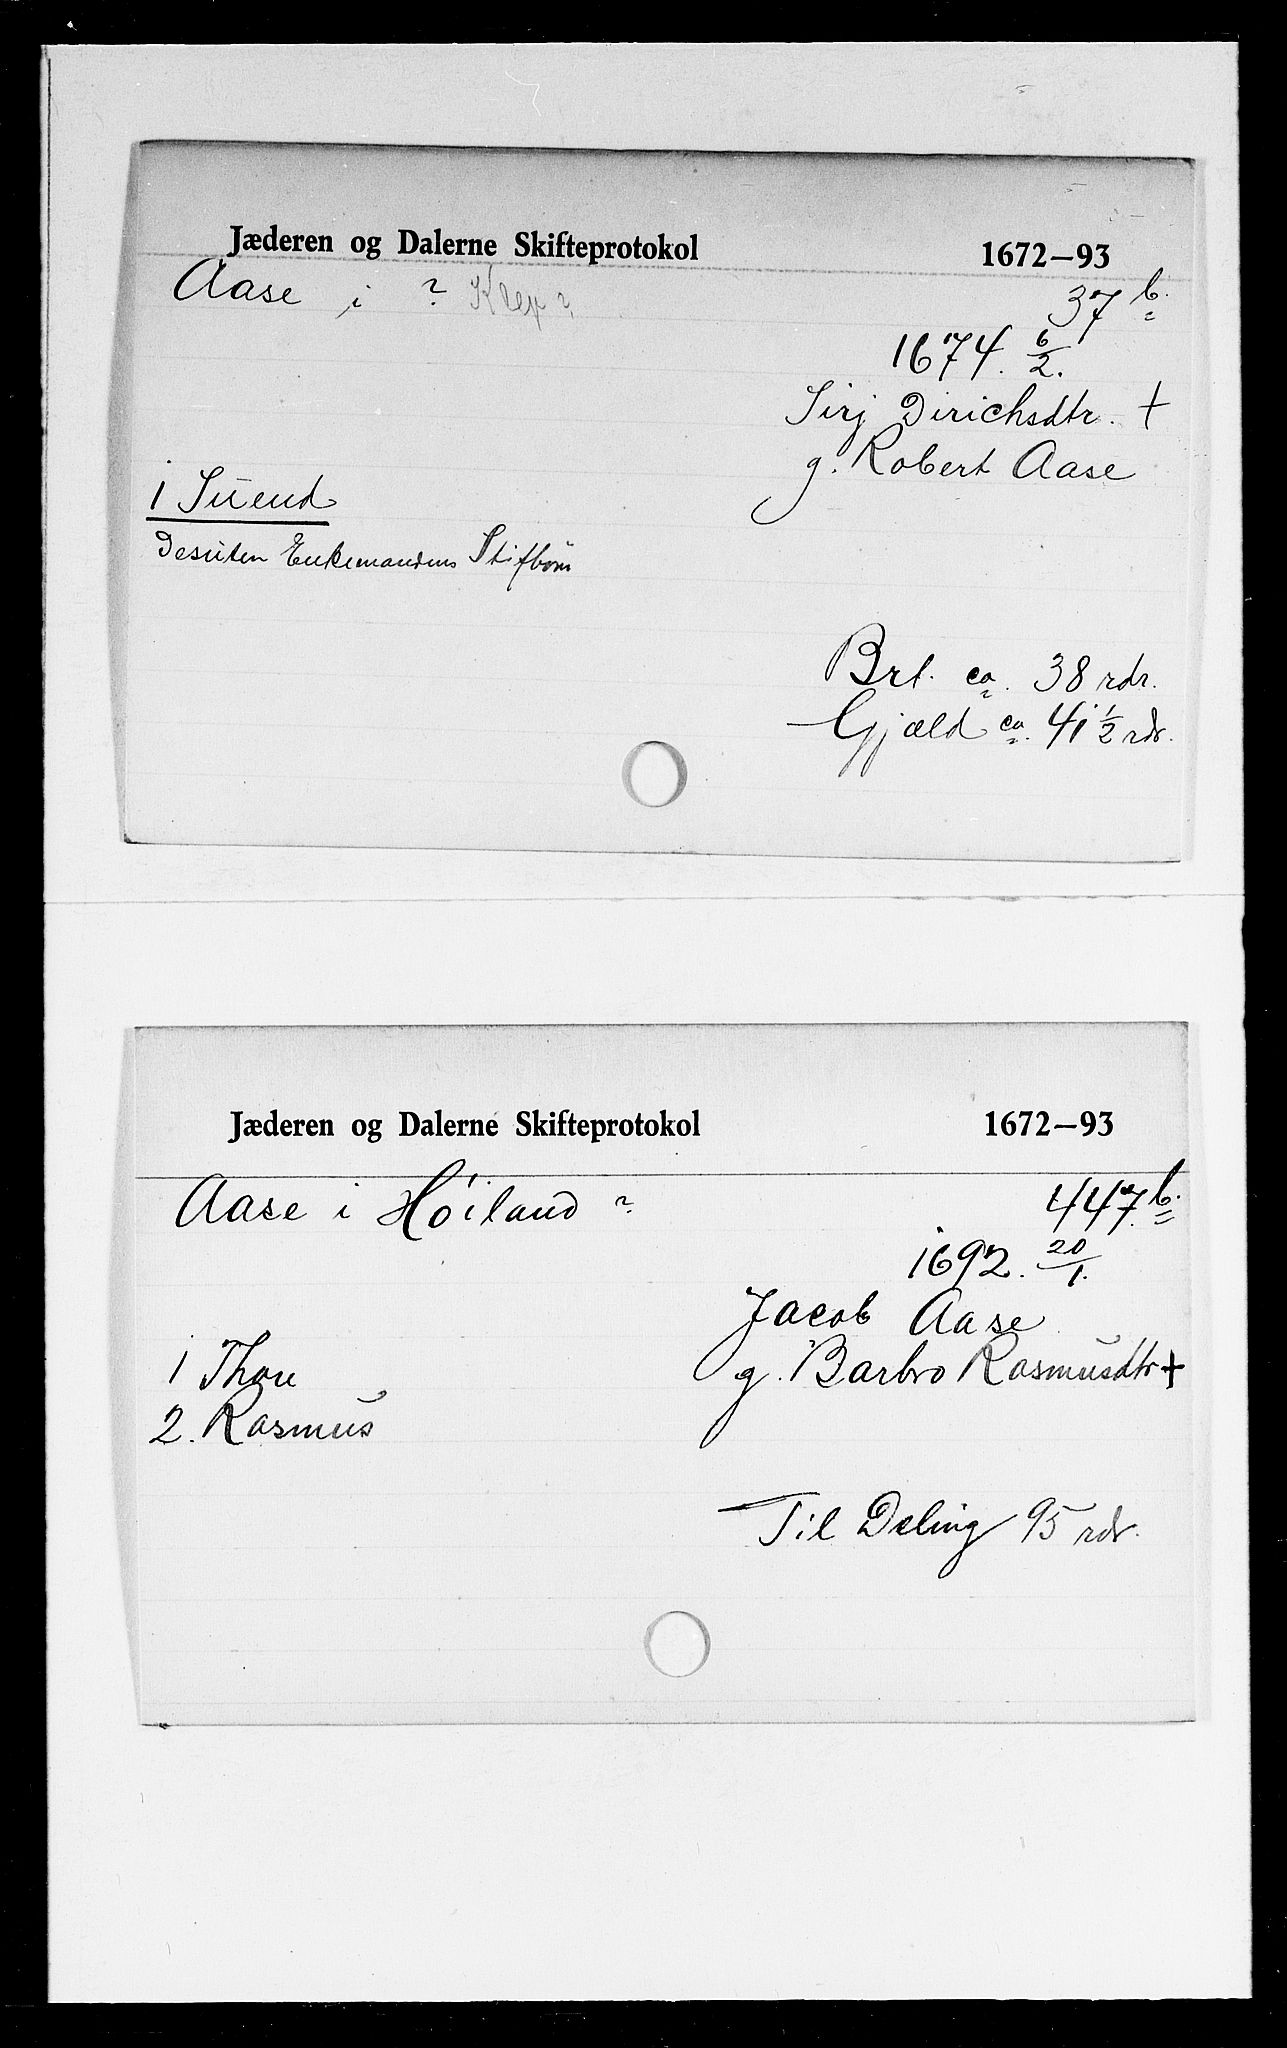 Jæderen og Dalerne Skifteprotokol 1672–93
Aase i ? Klep ?
37 b.
1674. 6/2.
Sirj Dirichsdtr. +
g. Robert Aase
1 Suend
Desuten Enkemandens Stifbörn
Brt. ca. 38 rdr.
Gjæld ca. 41 1/2 rdr.
Jæderen og Dalerne Skifteprotokol 1672–93
Aase i Höiland ?
447 b.
1692. 20/1.
Jacob Aase
g. Barbro Rasmusdtr +
1 Thore
2. Rasmus
Til Deling 95 rdr.